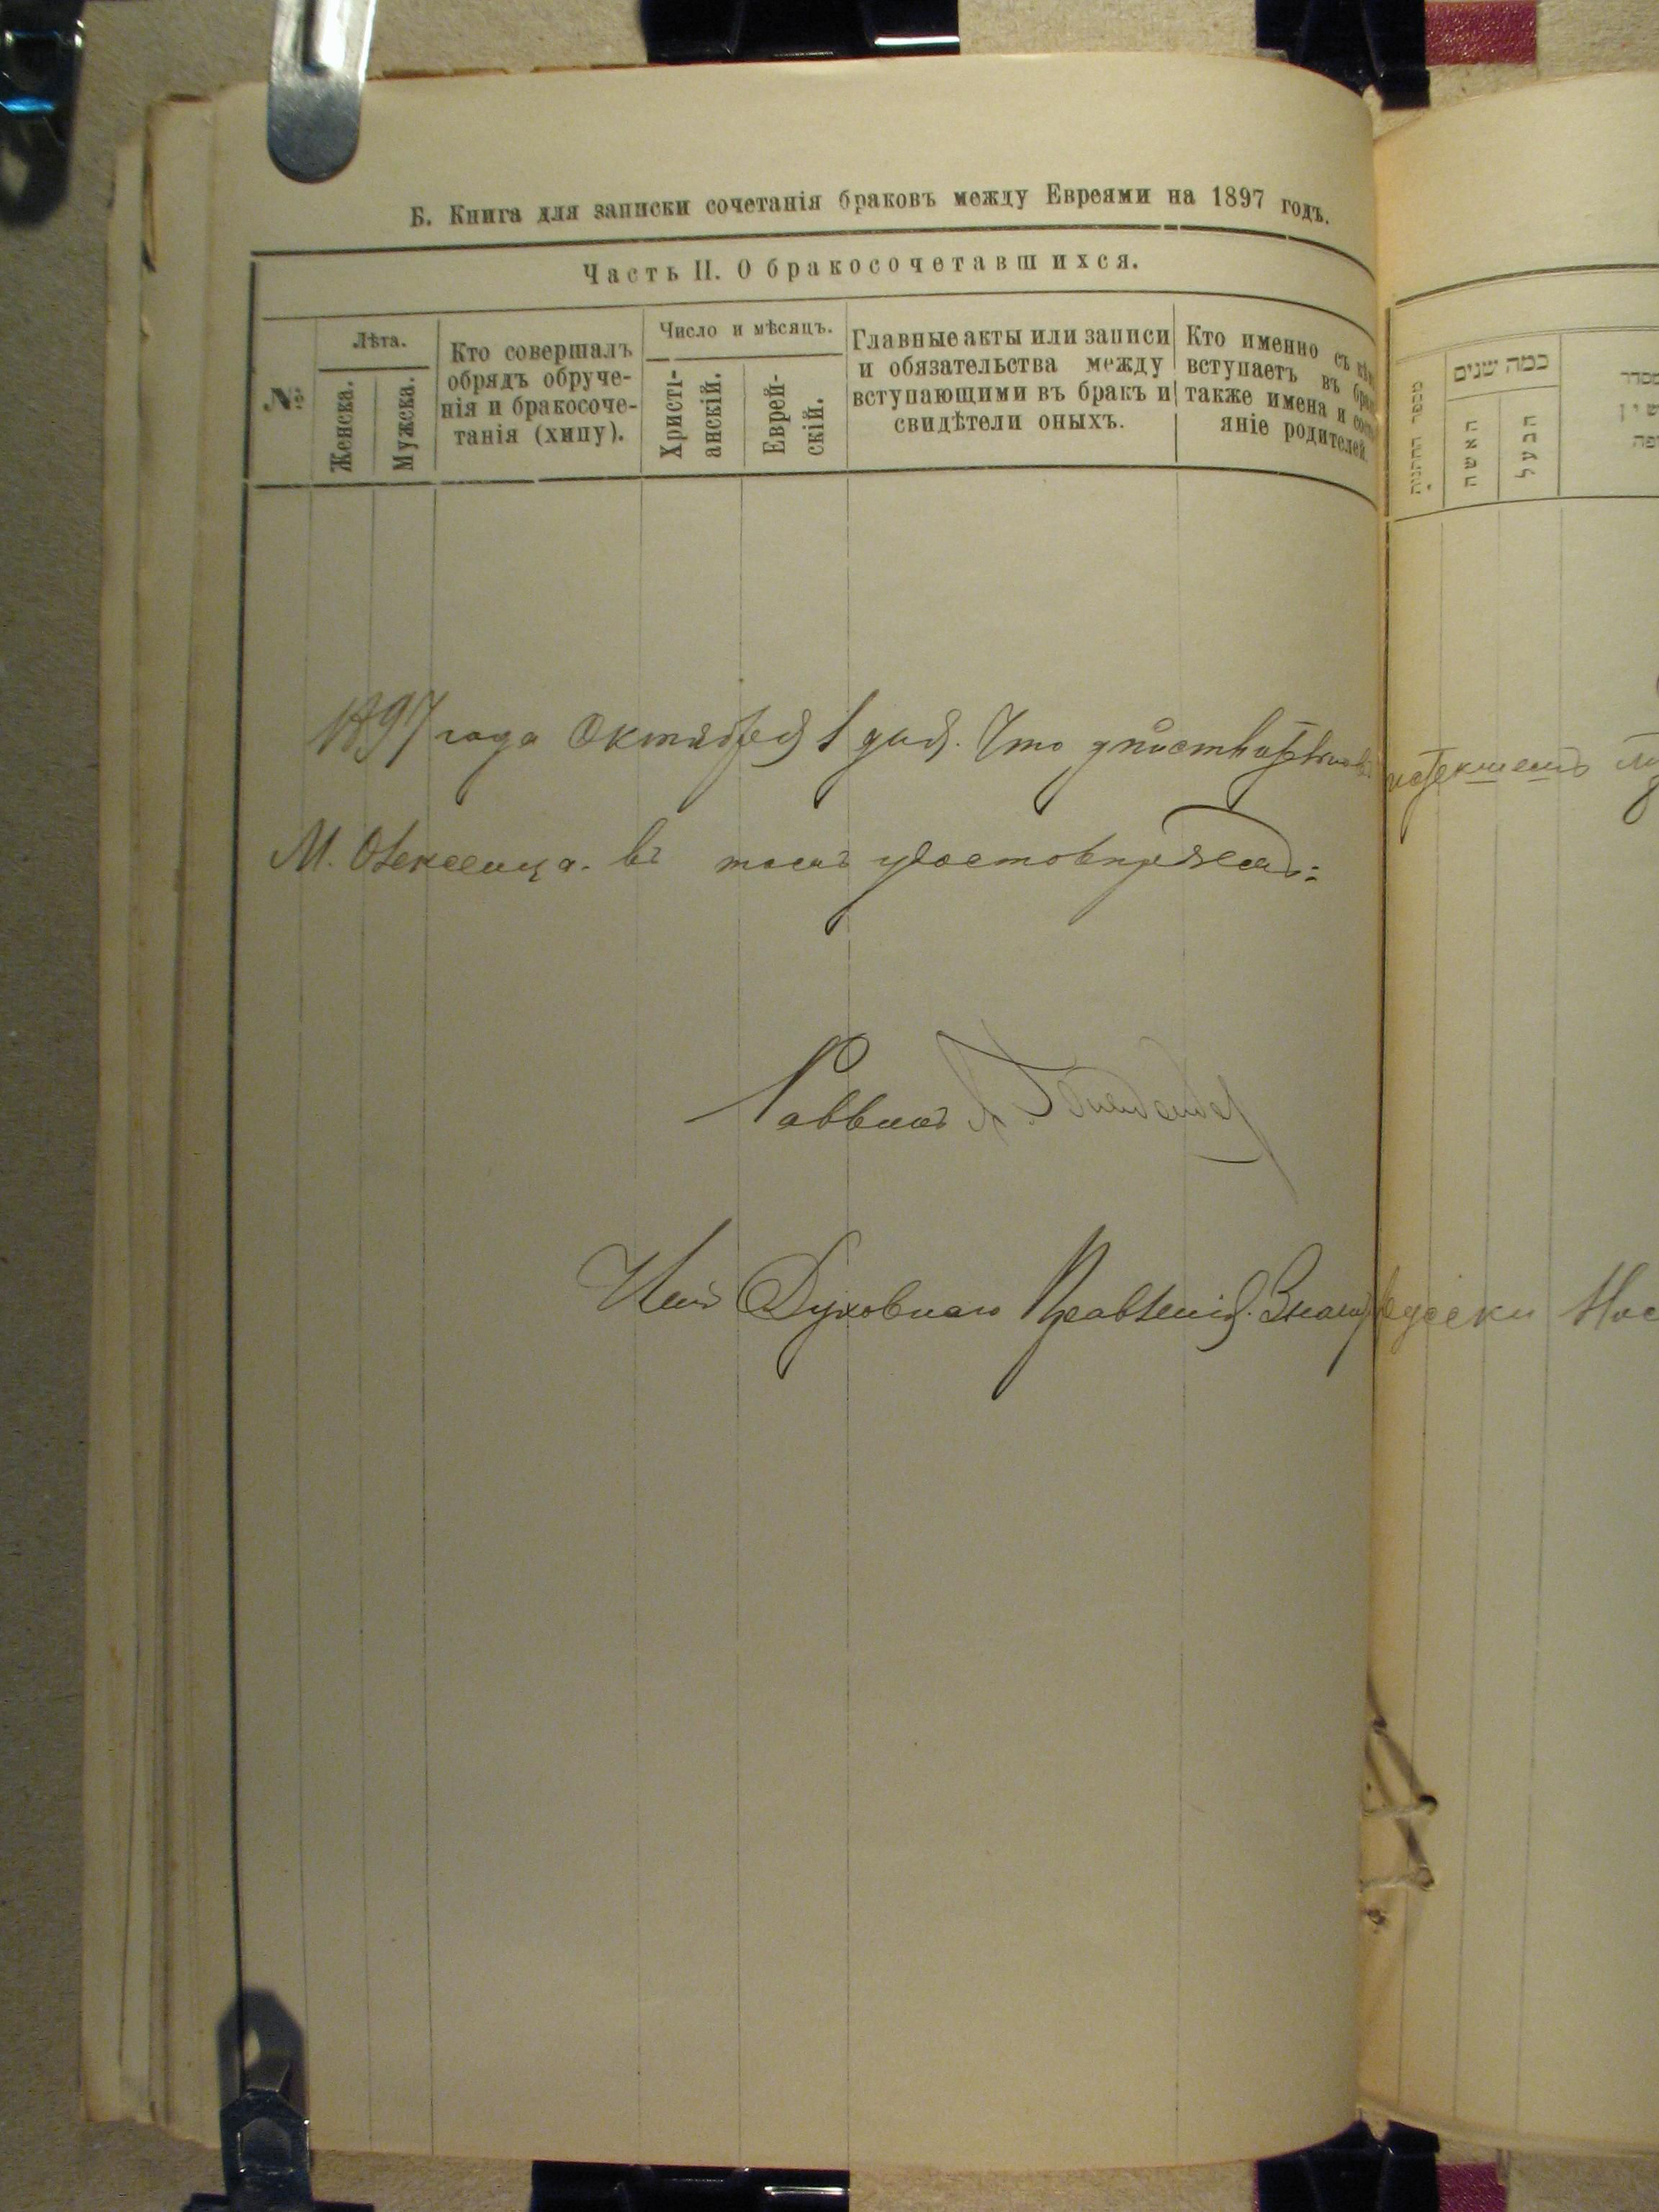 Б. Книга для записки сочетанія браковъ между Евреями на 1897 годъ.
Часть II. О бракосочетавшихся.
№
Лѣта.
Женска.
Мужска.
Кто совершалъ
обрядъ обруче-
нія и бракосоче-
танія (хипу).
Число и мѣсяцъ.
Христі-
анскій.
Еврей-
скій.
Главные акты или записи
и обязательства между
вступающими въ бракъ и
свидѣтели оныхъ.
Кто именно съ кѣмъ
вступаетъ въ бракъ
также имена и состо
яніе родителей.
מספר החתונות
כמה שנים
האשה
הבעל
1897 года Октября 1 дня. Что
М. въ томъ удостовѣряемъ:
Раввинъ
Член Духовнаго Правленія.